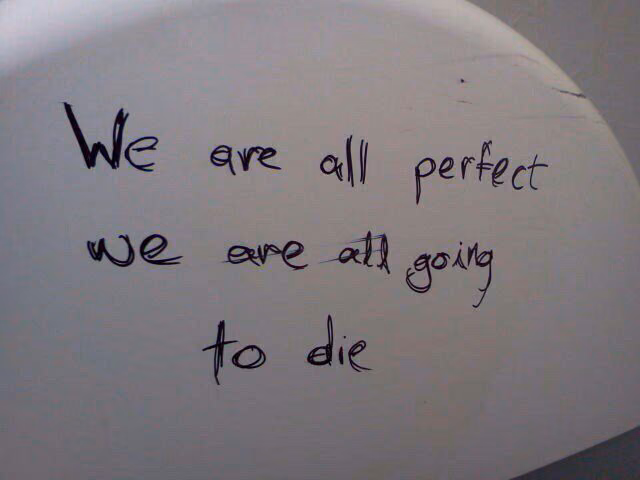 We are all perfect
we are all going
to die